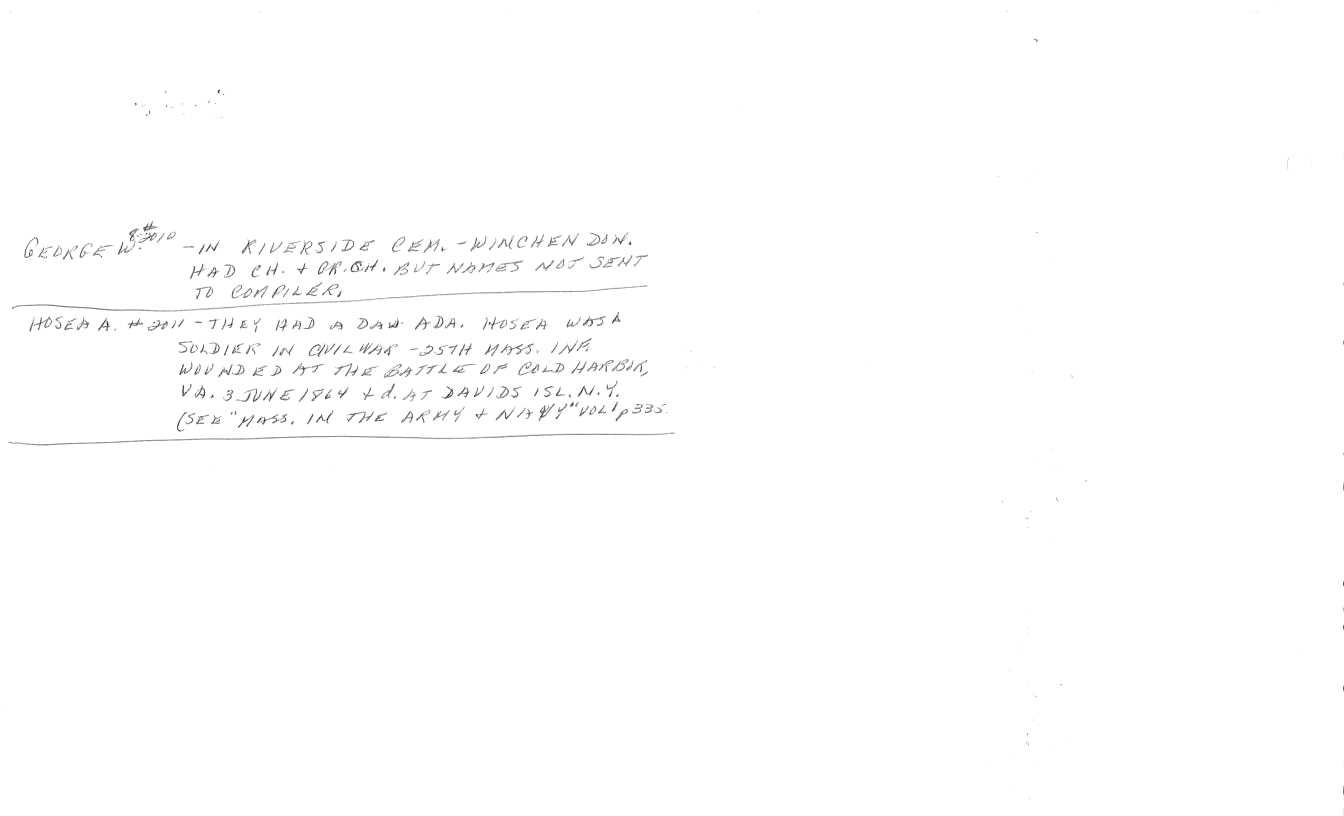 GEORGE W. #2010 - IN RIVERSIDE CEM. - WINCHENDON.
HAD CH. + GR.CH. BUT NAMES NOT SENT
TO COMPILER.
HOSEA A. #2011 - THEY HAD A DAU ADA. HOSEA WAS A
SOLDIER IN CIVIL WAR - 25TH MASS. INF.
WOUNDED AT THE BATTLE OF COLD HARBOR,
VA. 3 JUNE 1864 + d. AT DAVIDS ISL. N.Y.
(SEE "MASS. IN THE ARMY + NAVY" VOL 1 p 335